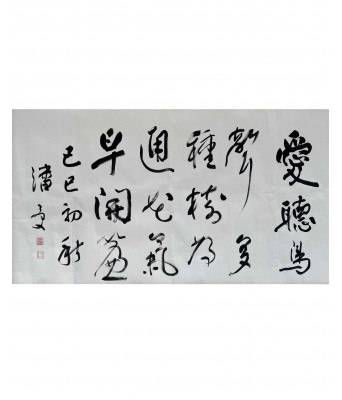 愛聽鳥
聲多
種樹為
通花氣
早開簾
己巳初秋
潘受